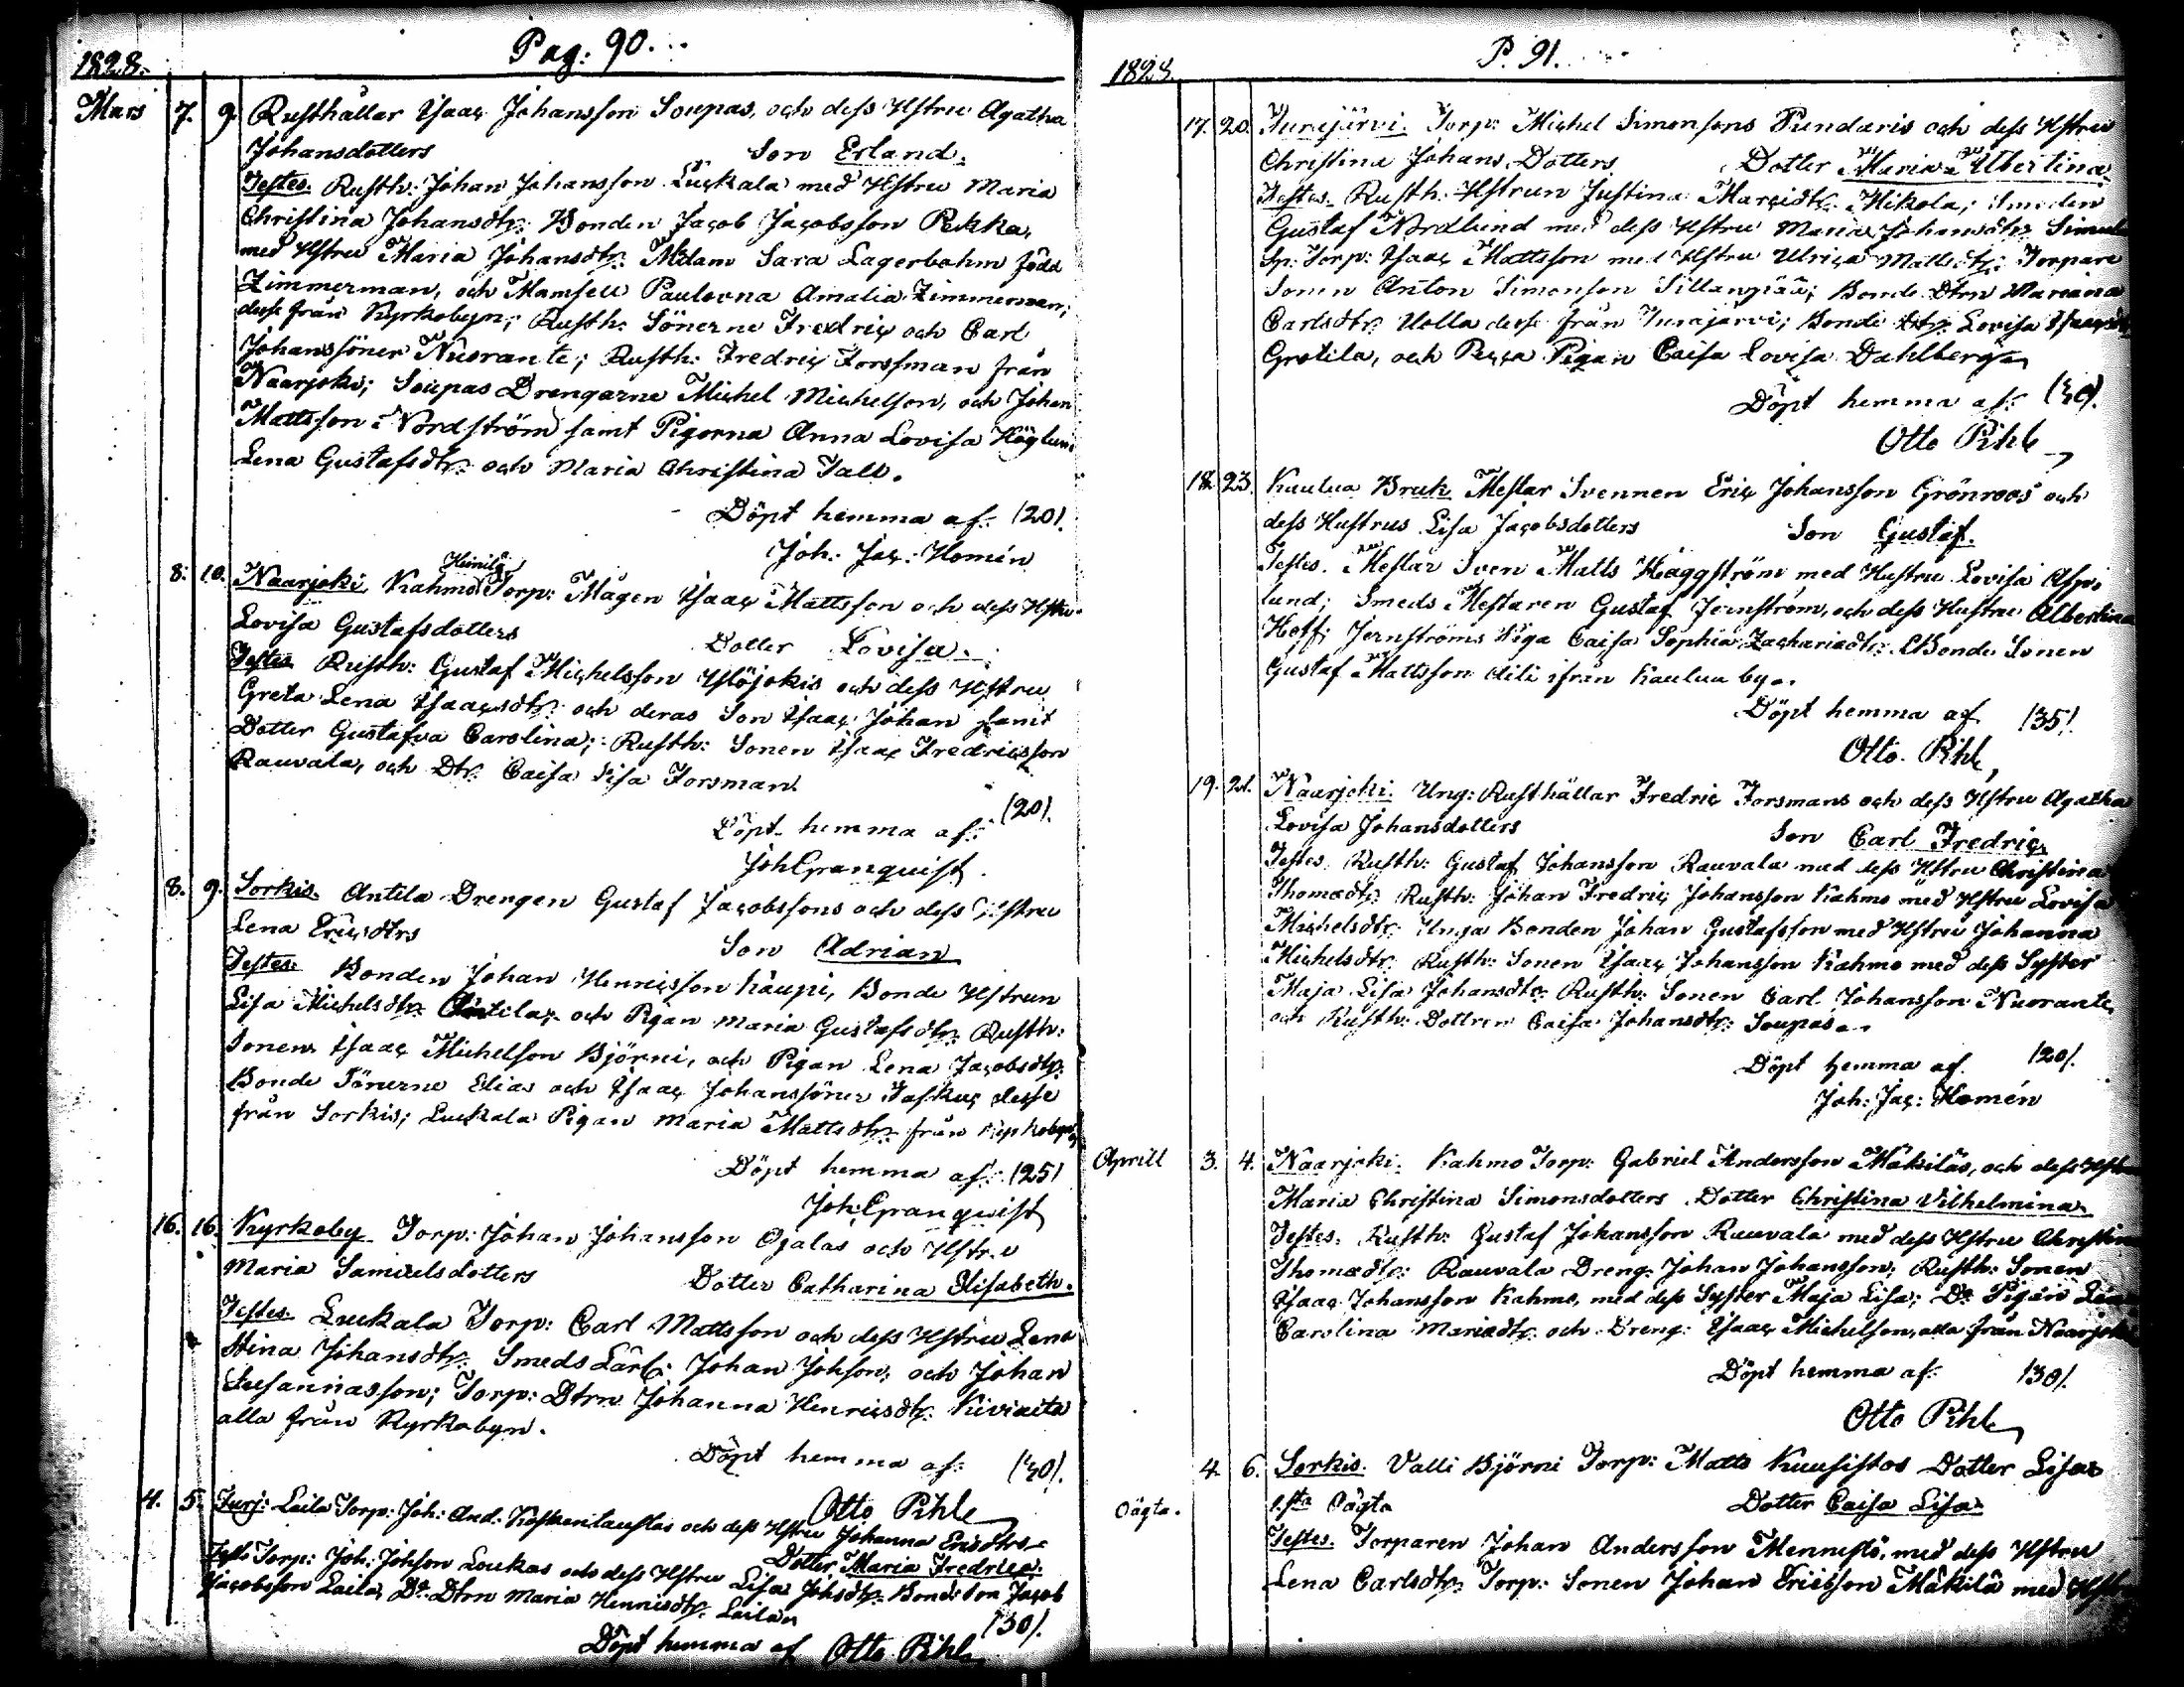 Pag: 90.
1828.
Mars 7. 9. Rusthållar Isaac Johansson Soupas, och dess Hstru Agatha
Johansdotters Son Erland.
Testes. Rusth: Johan Johansson Luckala med Hstru Maria
Christina Johansdtr. Bonden Jacob Jacobsson Pekka,
med Hstru Maria Johansdtr. Mdam Sara Lagerbohm född
Zimmerman, och Mamsell Paulovna Amalia Zimmerman;
desse från Kyrkobyn; Rusth: Sönerne Fredric och Carl
Johanssöner Nuorante; Rusth: Fredric Forssman från
Naarjoki; Soupas Drengarne Michel Michelson, och Johan
Mattsson Nordström samt Pigorna Anna Lovisa Höglun
Lena Gustafsdtr. och Maria Christina Tall.
Döpt hemma af: (20).
Joh: Jac: Homén
Heinilä
8. 10. Naarjoki Kahmo Torp: Mågen Isaac Mattsson och dess Hstru
Lovisa Gustafsdotters Dotter Lovisa.
Testes Rusth: Gustaf Michelsson Ylöjokis och dess Hstru
Greta Lena Isaacsdtr. och deras Son Isaac Johan samt
Dotter Gustafva Carolina; Rusth: Sonen Isaac Fredricsson
Rauvala, och Dtr. Caisa Lisa Forsman.
(20).
Döpt hemma af:
Joh Granquist
8. 9. Sorkis. Antila Drengen Gustaf Jacobssons och dess Hstru
Lena Ericsdtrs Son Adrian
Testes. Bonden Johan Henricsson Kaupi, Bonde Hstrun
Lisa Michelsdtr. Antila, och Pigan Maria Gustafsdtr. Rusth:
Sonen Isaac Michelson Björni, och Pigan Lena Jacobsdtr.
Bonde Sönerne Elias och Isaac Johanssöner Paskus desse
från Sorkis; Luckala Pigan Maria Mattsdtr. från Kyrkobyn
Döpt hemma af: (25)
Joh: Granquist
16. 16. Kyrkoby Torp: Johan Johansson Ojalas och Hstru
Maria Samuelsdotters Dotter Catharina Elisabeth.
Testes. Luckala Torp: Carl Mattsson och dess Hstru Lena
Stina Johansdtr. Smeds Lärl: Johan Johson, och Johan
Susannasson; Torp: Dtrn Johanna Henricsdtr. Kiviaita
alla från Kyrkobyn.
Döpt hemma af: (40).
Otto Pihl
4. 5. Jurj: Laila Torp: Joh: And: Koskenlaustas och dess Hstru Johanna Ericsdtrs
Dotter Maria Fredrica.
Test: Torp: Joh: Johson Loukas och dess Hstru Lisa Johsdtr. Bonde Son Jacob
Jacobsson Laila, Do Dtrn Maria Henricsdtr. Laila
(30).
Döpt hemma af Otto Pihl
P. 91.
1828.
17. 20. Jurajärvi. Torp: Michel Simonsons Pundaris och dess Hstru
Christina Johans Dotters Dotter Maria Albertina
Testes. Rusth: Hstrun Justina Marcidtr. Mikola; Smeden
Gustaf Nordlund med dess Hstru Maria Johansdtr Simula
Sp: Torp: Isaac Mattsson med Hstru Ulrica Mattsdtr. Torpare
Sonen Anton Simonson Sillanpää; Bonde Dtrn Mariana
Carlsdtr. Uolla desse från Jurajärvi; Bonde Dtr. Lovisa Isaacsdtr
Grotila, och Pigan Caisa Lovisa Dahlberg
Döpt hemma af: (40).
Otto Pihl
18. 23. Kaulua Bruk Mestar Svennen Eric Johansson Grönroos och
dess Hustrus Lisa Jacobsdotters Son Gustaf.
Testes. Mestar Sven Matts Häggström med Hustru Lovisa Asp-
lund; Smeds Mestaren Gustaf Jernström, och dess Hustru Albertina
Hoff; Jernströms Piga Caisa Sophia Zachariadtr. Bonde Sonen
Gustaf Mattsson ifrån Kaulua by.
Döpt hemma af (35).
Otto Pihl
19. 21. Naarjoki. Ung: Rusthållar Fredric Forsmans och dess Hstru Agatha
Lovisa Johansdotters Son Carl Fredric
Testes. Rusth: Gustaf Johansson Rauvala med dess Hstru Christina
Thomædtr. Rusth: Johan Fredric Johansson Kahmo med Hstru Lovisa
Michelsdtr. Unga Bonden Johan Gustafsson med Hstru Johanna
Michelsdtr. Rusth: Sonen Isaac Johansson Kahmo med dess Syster
Maja Lisa Johansdtr. Rusth: Sonen Carl Johansson Nuorante,
och Rusth: Dottren Caisa Johansdtr: Soupas.
Döpt hemma af (20).
Joh: Jac: Homén
Aprill 3. 4. Naarjoki. Kahmo Torp: Gabriel Andersson Mäkiläs, och dess Hstru
Maria Christina Simonsdotters Dotter Christina Vilhelmina
Testes. Rusth: Gustaf Johansson Rauvala med dess Hstru Christina
Thomædtr: Rauvala Dreng: Johan Johansson; Rusth: Sonen
Isaac Johansson Kahmo, med dess Syster Maja Lisa; Do Pigan
Carolina Mariædtr. och Dreng: Isaac Michelson, alla från Naarjoki
Döpt hemma af: (30).
Otto Pihl
4. 6. Sorkis. Valli Björni Torp: Matts Kuusistos Dotter Lisas
Oägta. 1.sta Oägta Dotter Caisa Lisa
Testes. Torparen Johan Andersson Mennistö, med dess Hstru
Lena Carlsdtr. Torp: Sonen Johan Ericsson Mäkilä med Hstru